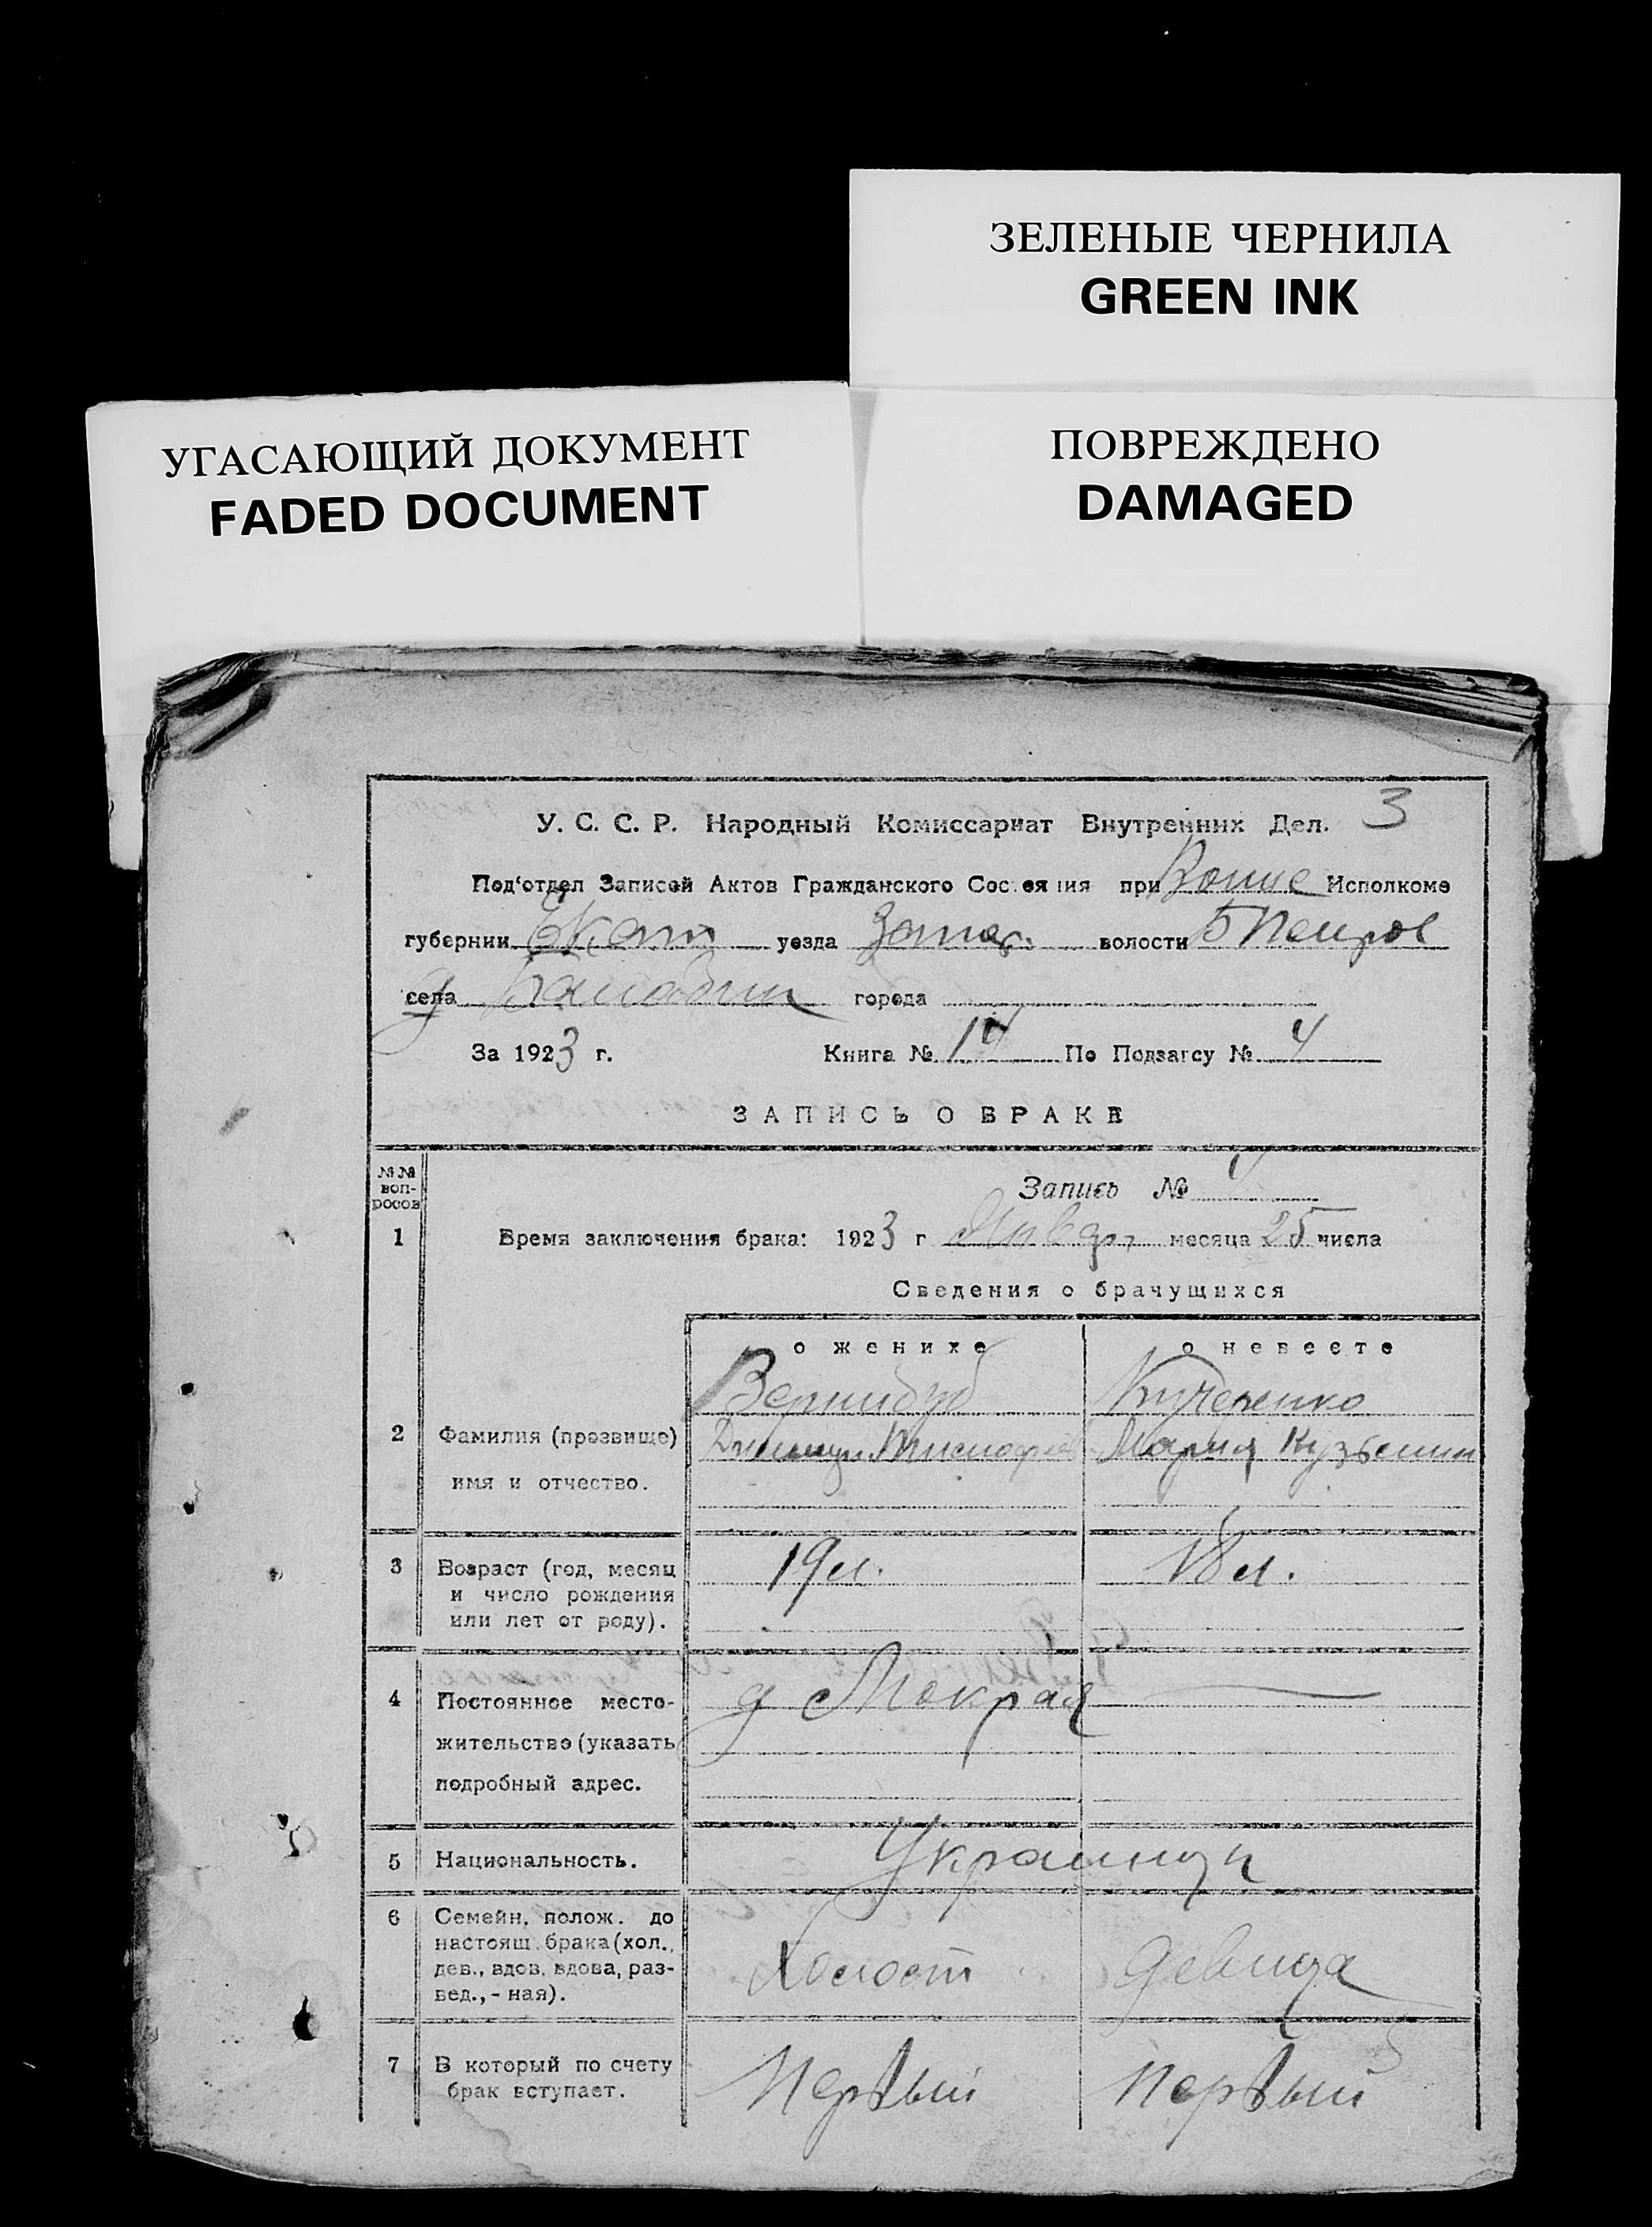 ЗЕЛЕНЫЕ ЧЕРНИЛА
GREEN INK
УГАСАЮЩИЙ ДОКУМЕНТ
FADED DOCUMENT
ПОВРЕЖДЕНО
DAMAGED
3
У. С. С. Р. Народный Комиссариат Внутренних Дел.
Под'отдел Записей Актов Гражданского Состояния при Исполкоме
губернии Екат уезда Запор. волости Б Петров
села д города
За 1923 г. Книга № 14 По Подзагсу № 4
ЗАПИСЬ О БРАКЕ
№№ вопросов
Запись № 4
1 Время заключения брака: 1923 г Январ месяца 25 числа
Сведения о брачущихся
о женихе о невесте
Вернидуб Кучеренко
2 Фамилия (прозвище) Мария Кузьмин
имя и отчество.
3 Возраст (год, месяц 19 л. 18 л.
и число рождения
или лет от роду).
4 Постоянное место- д Мокрая
жительство (указать
подробный адрес.
5 Национальность. Украинцы
6 Семейн. полож. до
настоящ. брака (хол., Холост девица
дев., вдов, вдова, раз-
вед., - ная).
7 В который по счету Первый Первый
брак вступает.